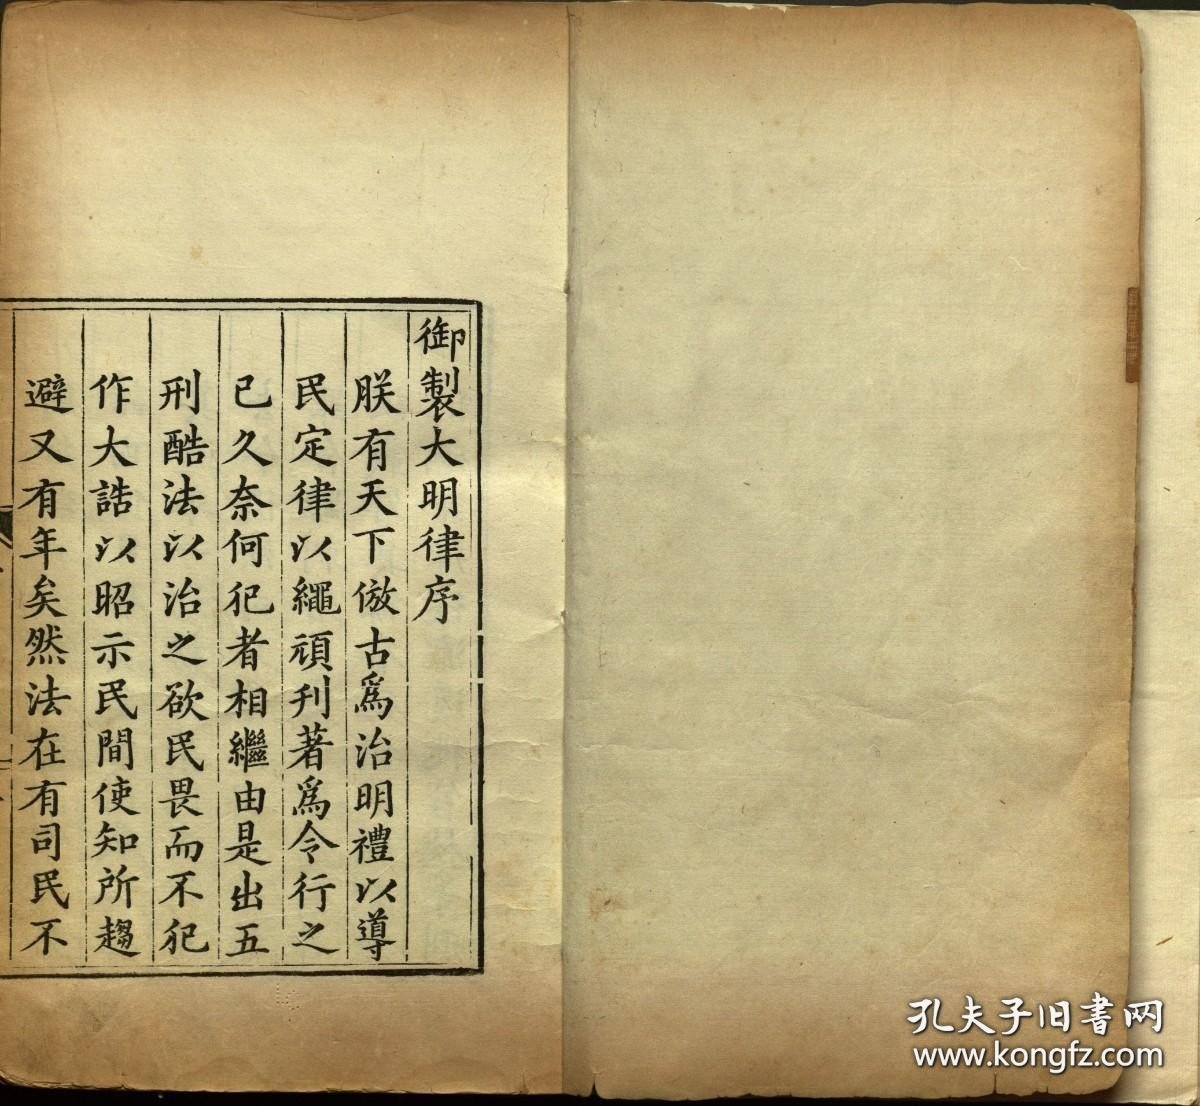 御製大明律序
朕有天下倣古爲治明禮以導
民定律以繩頑刋著爲令行之
已久奈何犯者相繼由是出五
刑酷法以治之欲民畏而不犯
作大誥以昭示民間使知所趨
避又有年矣然法在有司民不
孔夫子旧書网
www.kongfz.com